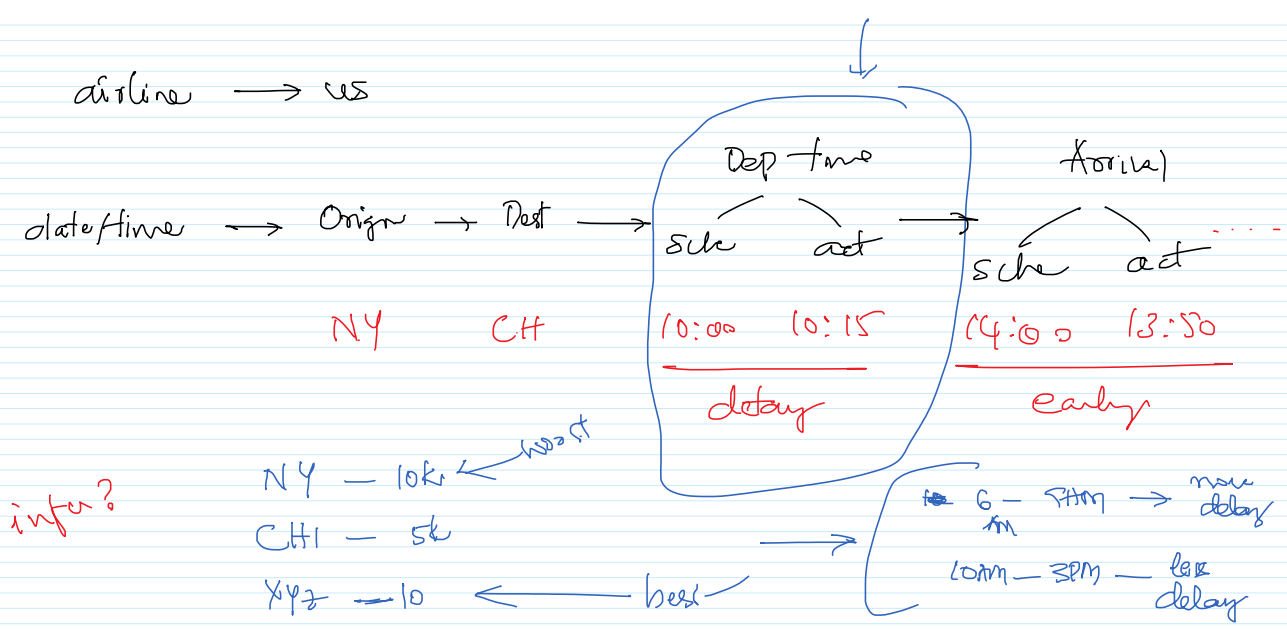 airline → us
Dep time Arrival
date/time → Origin → Dest → sche act → sche act .....
NY CH 10:00 10:15 14:00 13:50
delay early
infer?
NY — 10k ← worst
CHI — 5k
XYZ — 10 ← best
→
6 AM — 9AM → more delay
10AM — 3PM — less delay